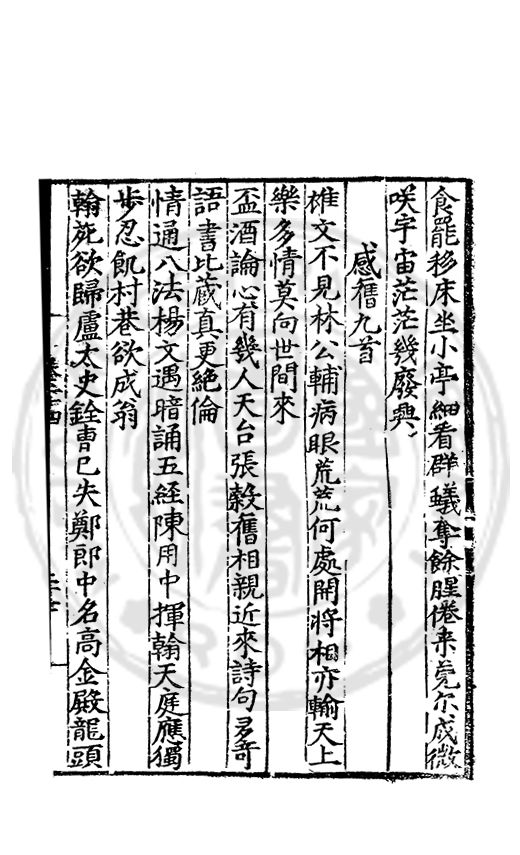 食罷移床坐小亭細看群蟻奪餘腥倦来莞尔成微
咲宇宙茫茫幾廢興
感舊九首
雄文不見林公輔病眼荒荒何處開將相亦輸天上
樂多情莫向世間來
盃酒論心有幾人天台張糓舊相親近來詩句多奇
語書比蔵真更絕倫
情通八法楊文遇暗誦五經陳用中揮翰天庭應獨
步忍飢村巷欲成翁
翰死欲歸盧太史銓曹已失鄭郎中名高金殿龍頭